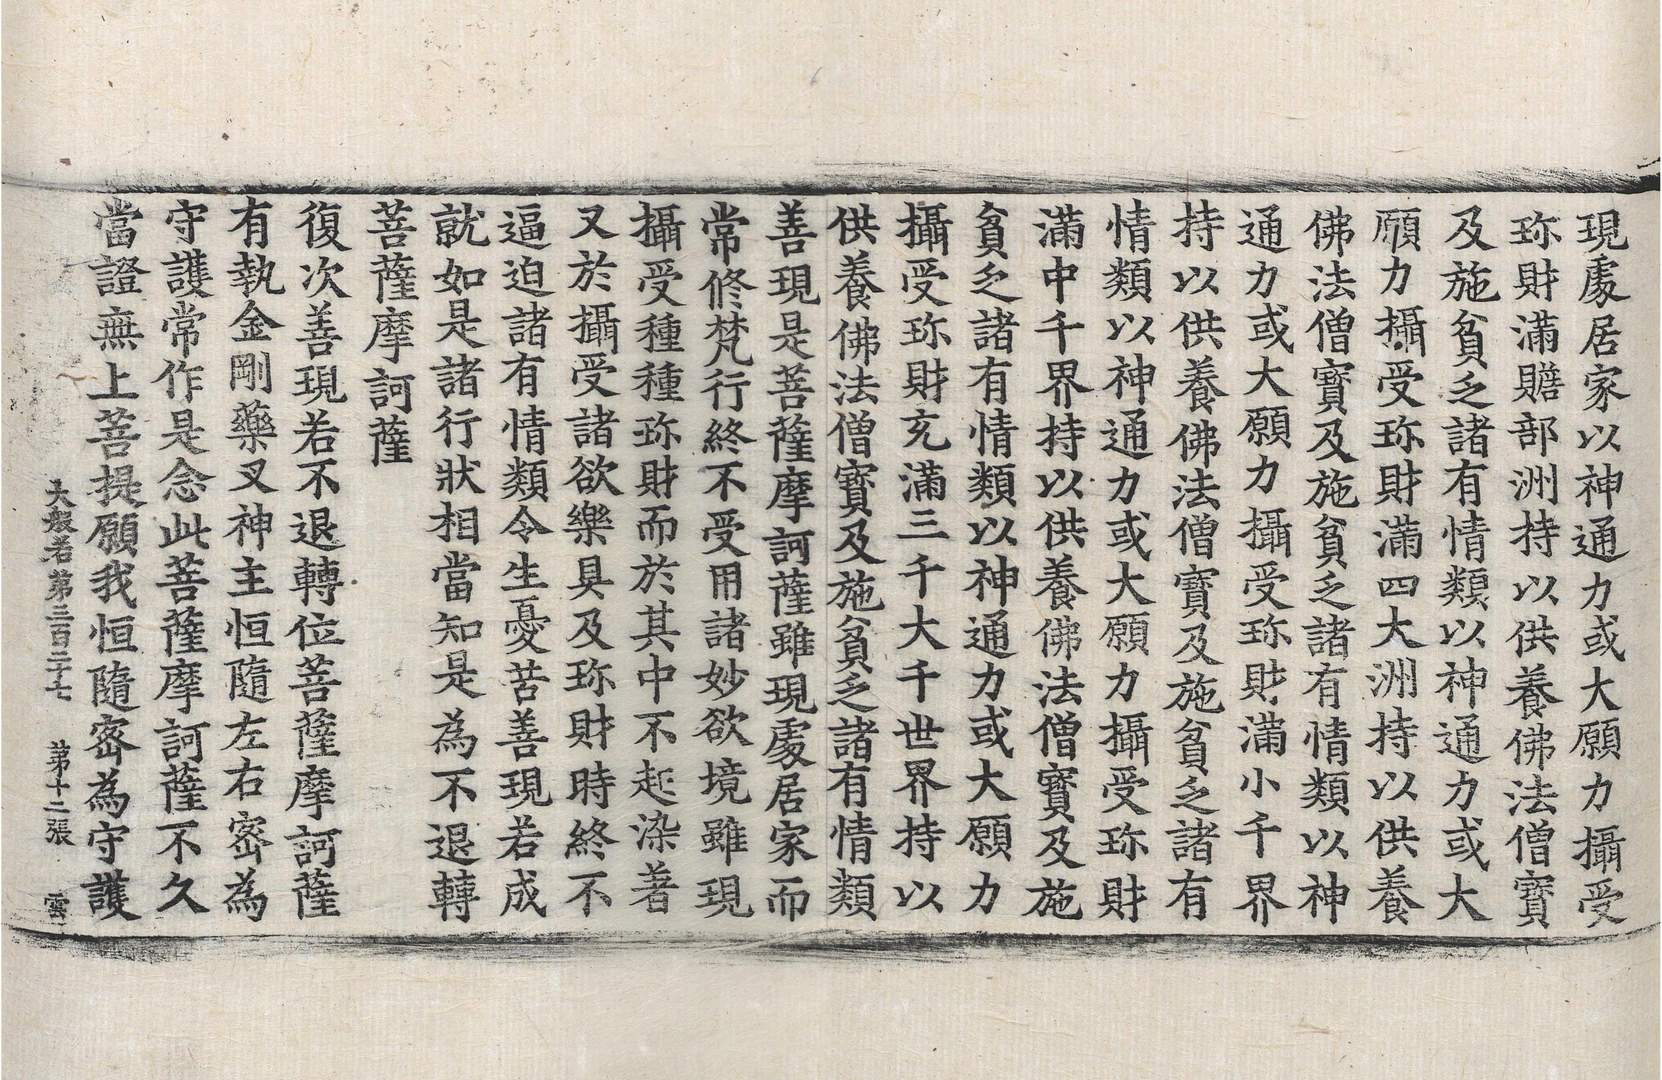 現處居家以神通力或大願力攝受
珎財滿贍部洲持以供養佛法僧寶
及施貧乏諸有情類以神通力或大
願力攝受珎財滿四大洲持以供養
佛法僧寶及施貧乏諸有情類以神
通力或大願力攝受珎財滿小千界
持以供養佛法僧寶及施貧乏諸有
情類以神通力或大願力攝受珎財
滿中千界持以供養佛法僧寶及施
貧乏諸有情類以神通力或大願力
攝受珎財充滿三千大千世界持以
供養佛法僧寶及施貧乏諸有情類
善現是菩薩摩訶薩雖現處居家而
常修梵行終不受用諸妙欲境雖現
攝受種種珎財而於其中不起染著
又於攝受諸欲樂具及珎財時終不
逼迫諸有情類令生憂苦善現若成
就如是諸行狀相當知是為不退轉
菩薩摩訶薩
復次善現若不退轉位菩薩摩訶薩
有執金剛藥叉神主恒隨左右密為
守護常作是念此菩薩摩訶薩不久
當證無上菩提願我恒隨密為守護
大般若第三百二十七 第十二張 雲